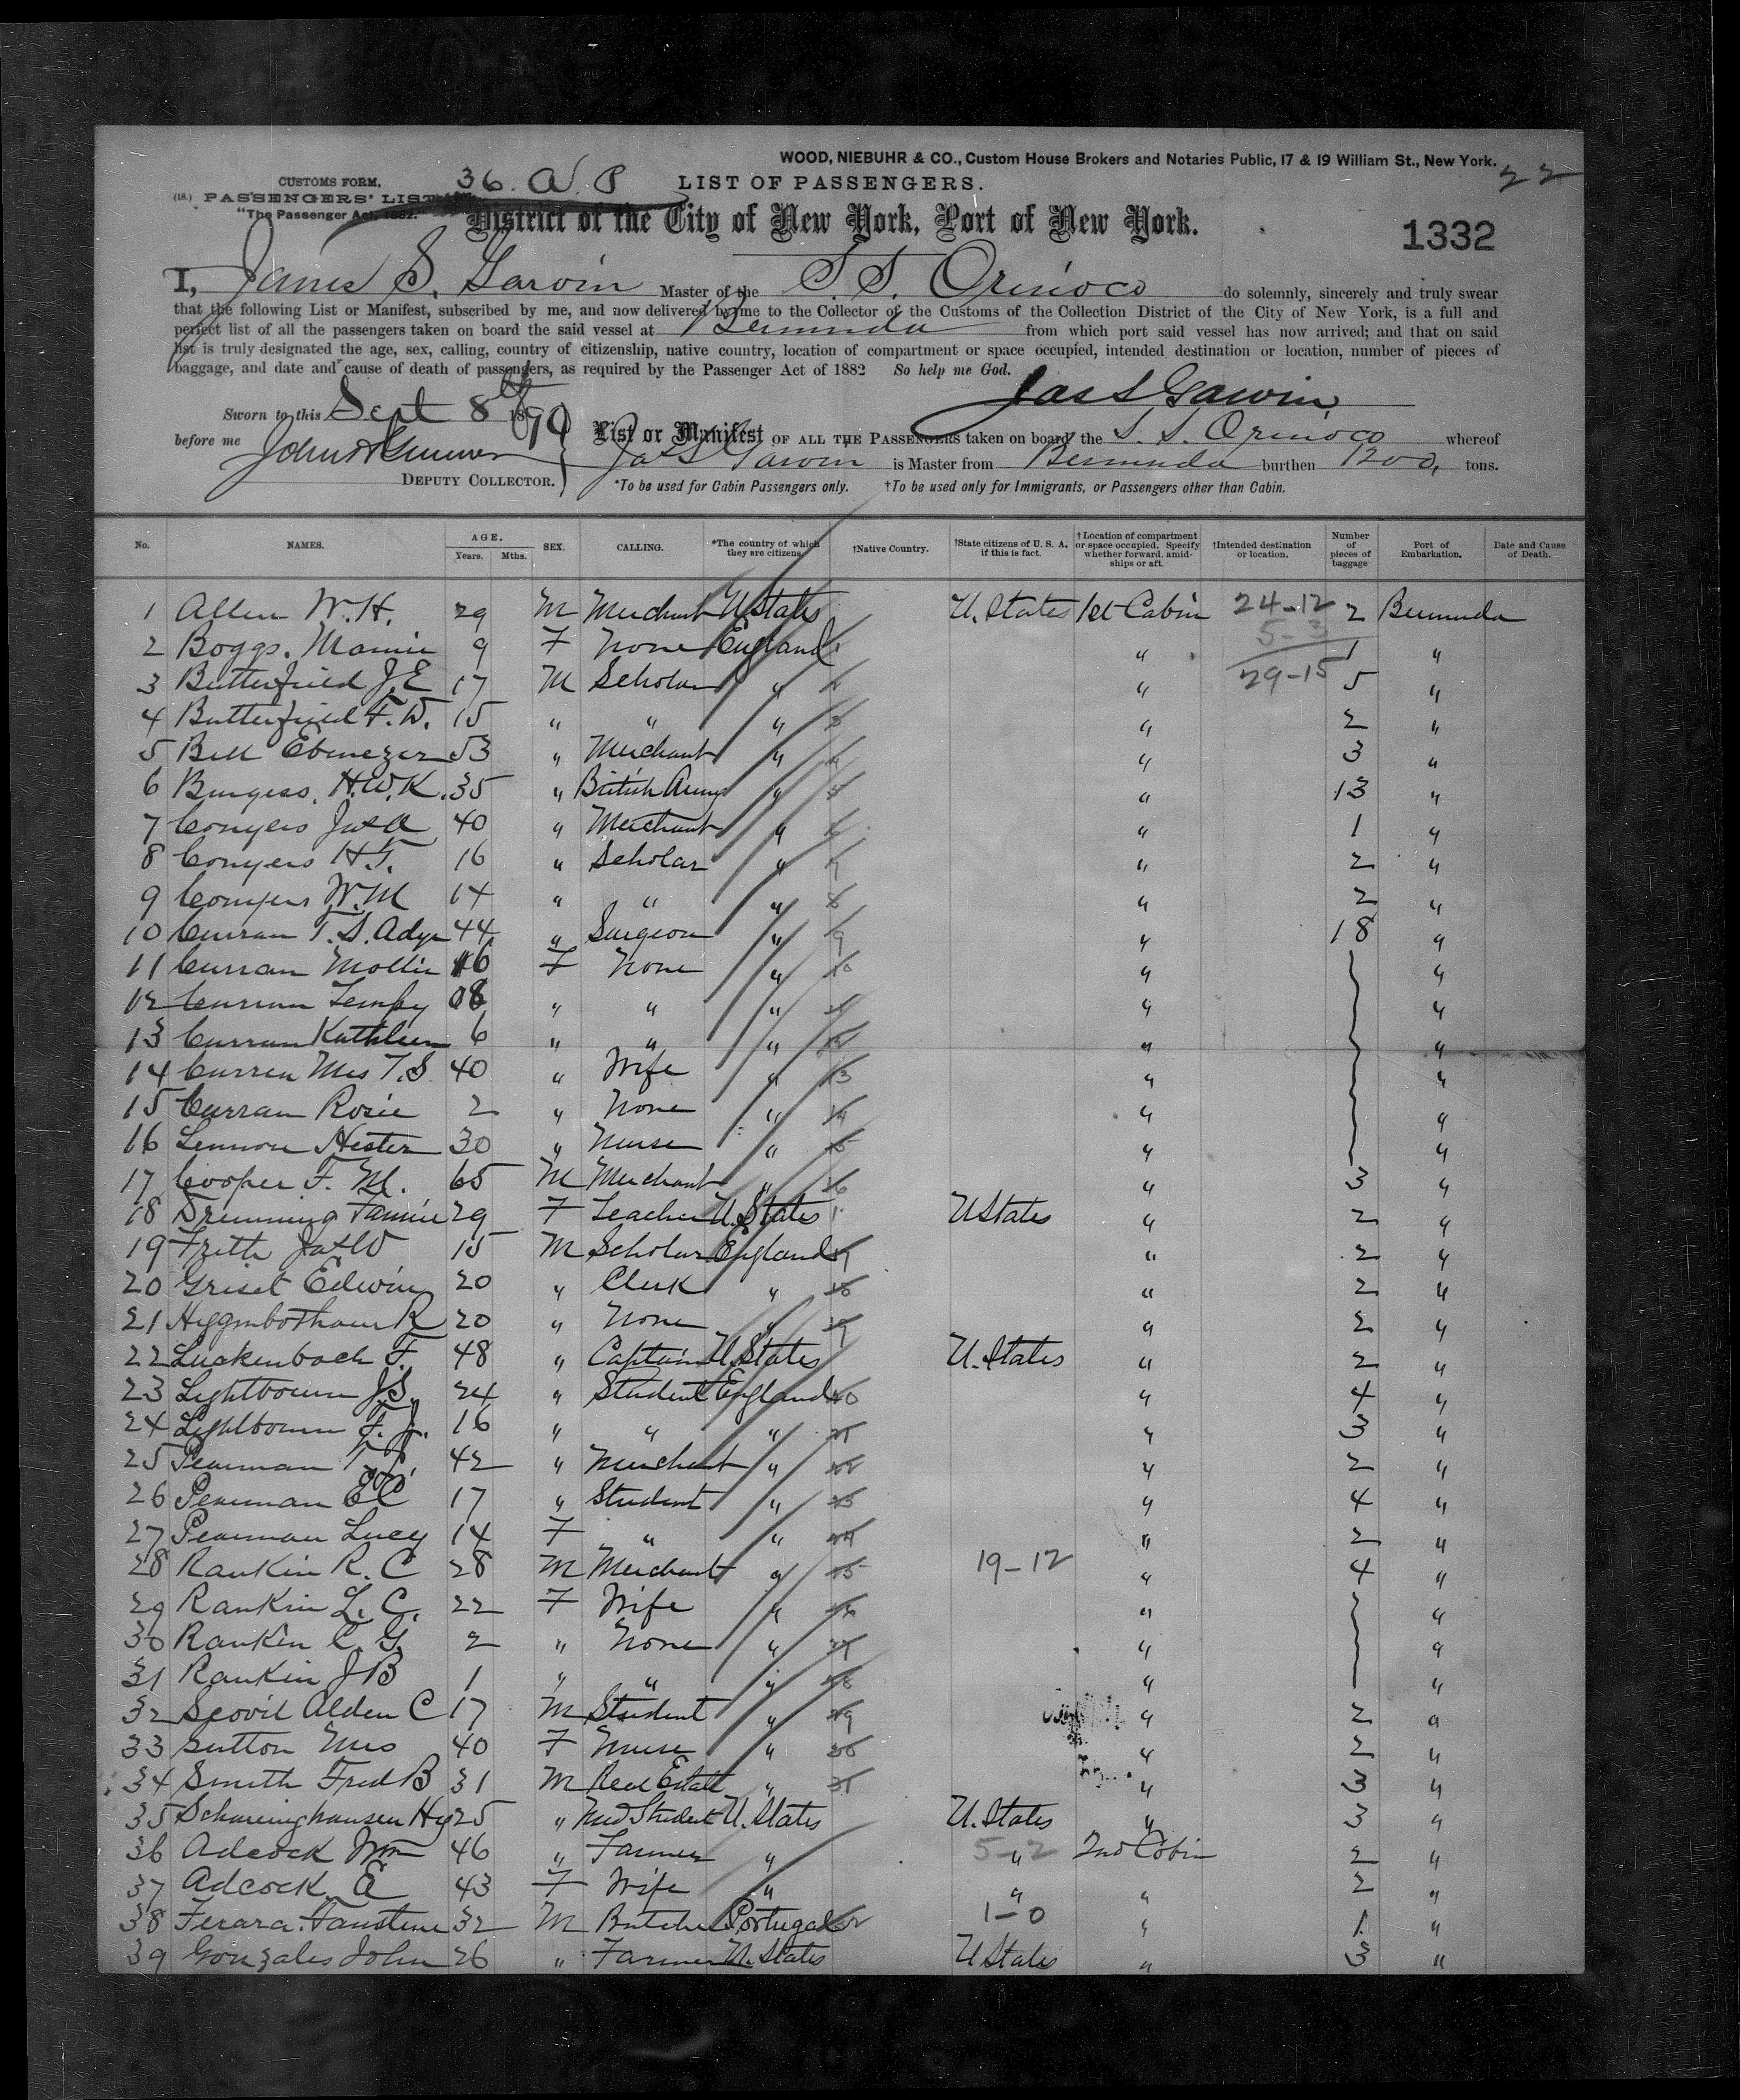 WOOD, NIEBUHR & CO., Custom House Brokers and Notaries Public, 17 & 19 William St., New York.
22
CUSTOMS FORM.
36. A. P
LIST OF PASSENGERS.
(18.) PASSENGERS' LIST
"The Passenger Act, 1882."
District of the City of New York, Port of New York.
1332
I, James S. Garvin Master of the S. S. Orinoco do solemnly, sincerely and truly swear
that the following List or Manifest, subscribed by me, and now delivered by me to the Collector of the Customs of the Collection District of the City of New York, is a full and
perfect list of all the passengers taken on board the said vessel at Bermuda from which port said vessel has now arrived; and that on said
list is truly designated the age, sex, calling, country of citizenship, native country, location of compartment or space occupied, intended destination or location, number of pieces of
baggage, and date and cause of death of passengers, as required by the Passenger Act of 1882 So help me God.
Jas S Garvin
Sworn to this Sept 8th 1890
before me
DEPUTY COLLECTOR.
List or Manifest OF ALL THE PASSENGERS taken on board the S. S. Orinoco whereof
Jas S Garvin is Master from Bermuda burthen 1200, tons.
*To be used for Cabin Passengers only. †To be used only for Immigrants, or Passengers other than Cabin.
No. NAMES. AGE. Years. Mths. SEX. CALLING. *The country of which they are citizens. †Native Country. †State citizens of U. S. A. if this is fact. †Location of compartment or space occupied. Specify whether forward, amidships or aft. †Intended destination or location. Number of pieces of baggage Port of Embarkation. Date and Cause of Death.
1 Allen W. H. 29 M Merchant U States U. States 1st Cabin 24-12 2 Bermuda
2 Boggs. Mamie 9 F None England 1 " 5-3 1 "
3 Butterfield J. E 17 M Scholar " 2 " 29-15 5 "
4 Butterfield F. W. 15 " " " 3 " 2 "
5 Bell Ebenezer 53 " Merchant " 4 " 3 "
6 Burgess. H. W. K. 35 " British Army " 5 " 13 "
7 Conyers Jas A 40 " Merchant " 6 " 1 "
8 Conyers H. T. 16 " Scholar " 7 " 2 "
9 Conyers W. M 14 " " " 8 " 2 "
10 Curran T. S. 44 " Surgeon " 9 " 18 "
11 Curran Mollie 16 F None " 10 " "
12 Curran 08 " " " 11 " "
13 Curran Kathleen 6 " " " 12 " "
14 Curren Mrs T. S. 40 " Wife " 13 " "
15 Curran Rosie 2 " None " 14 " "
16 Lennon Hester 30 " Nurse " 15 " "
17 Cooper F. M. 65 M Merchant " 16 " 3 "
18 Fannie 29 F Teacher U. States 1 U States " 2 "
19 Frith Jas W 15 M Scholar England 17 " 2 "
20 Griset Edwin 20 " Clerk " 18 " 2 "
21 Higginbotham R 20 " None " 19 " 2 "
22 Luckenbach F. 48 " Captain U. States U. States " 2 "
23 Lightbourn J S. 24 " Student England 20 " 4 "
24 Lightbourn F. J. 16 " " " 21 " 3 "
25 Pearman T. J. 42 " Merchant " 22 " 2 "
26 Pearman E C 17 " Student " 23 " 4 "
27 Pearman Lucy 14 F " " 24 " 2 "
28 Rankin R. C 28 M Merchant " 25 19-12 " 4 "
29 Rankin L. C. 22 F Wife " 26 " "
30 Rankin C. G. 2 " None " 27 " "
31 Rankin J B 1 " " " 28 " "
32 Scovil Alden C 17 M Student " 29 " 2 "
33 Sutton Mrs 40 F Nurse " 30 " 2 "
34 Smith Fred B 31 M Real Estate " 31 " 3 "
35 Scharringhausen Hy 25 " Med Student U. States U. States " 3 "
36 Adcock Wm 46 " Farmer " 5-2 " 2nd Cabin 2 "
37 Adcock. E 43 F Wife " " " 2 "
38 Ferara. Faustine 32 M Butcher Portugal 32 1-0 " 1 "
39 Gonzales John 26 " Farmer U. States U States " 3 "